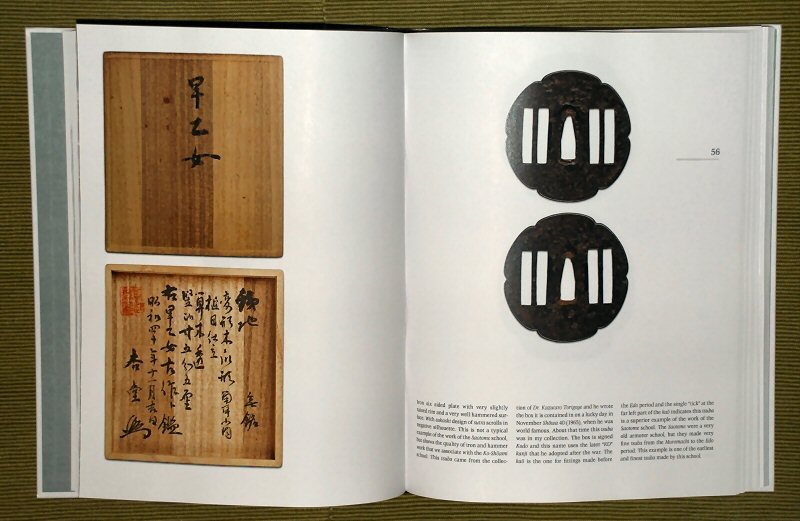 早乙女
鐵地 無銘
変形木瓜形
槌目仕立
算木透
右早乙女古作ノ鐔
昭和四十年十一月吉日
杏堂
56
Iron six sided plate with very slightly
raised rim and a very well hammered sur-
face. With sukashi design of sutra scrolls in
negative silhouette. This is not a typical
example of the work of the Saotome school,
but shows the quality of iron and hammer
work that we associate with the Ko-Shōami
school. This tsuba came from the collec-
tion of Dr. Kazutaro Torigoye and he wrote
the box it is contained in on a lucky day in
November Shōwa 40 (1965), when he was
world famous. About that time this tsuba
was in my collection. The box is signed
Kodo and this name uses the later "KO"
kanji that he adopted after the war. The
kaō is the one for fittings made before
the Edo period and the single "tick" at the
far left part of the kaō indicates this tsuba
is a superior example of the work of the
Saotome school. The Saotome were a very
old armorer school, but they made very
fine tsuba from the Muromachi to the Edo
period. This example is one of the earliest
and finest tsuba made by this school.